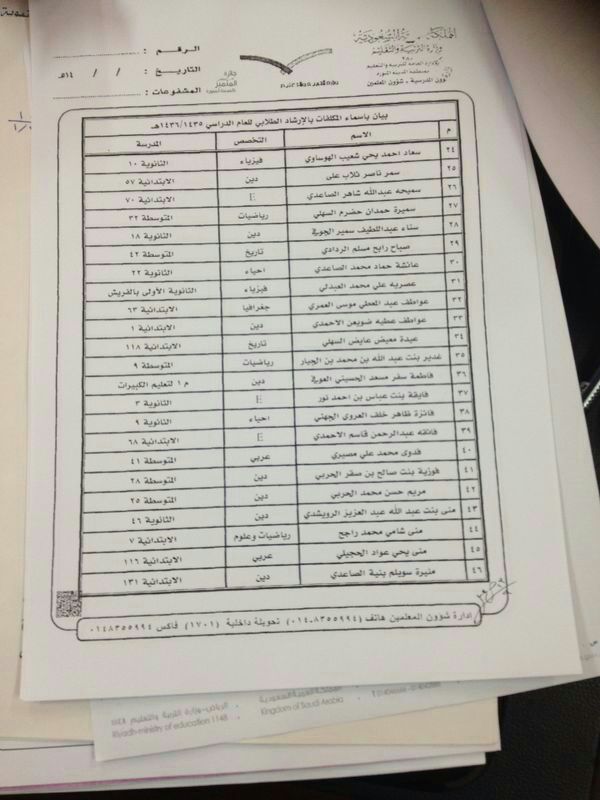 المملكة العربية السعودية
وزارة التربية والتعليم
شؤون المدرسية ، شؤون المعلمين
جائزة
المتميز
الرقم :
التاريخ : / / ١٤هـ
المشفوعات :
بيان بأسماء المكلفات بالإرشاد الطلابي للعام الدراسي ١٤٣٦/١٤٣٥هـ
م الاسم التخصص المدرسة
٢٤ سعاد احمد يحي شعيب الهوساوي فيزياء الثانوية ١٠
٢٥ سمر ناصر ثلاب على دين الابتدائية ٥٧
٢٦ سميحه عبدالله شاهر الصاعدي E الابتدائية ٧٠
٢٧ سميرة حمدان حضرم السهلي رياضيات المتوسطة ٣٢
٢٨ سناء عبداللطيف سمير الجوني دين الثانوية ١٨
٢٩ صباح رابح مسلم الردادي تاريخ المتوسطة ٤٢
٣٠ عائشة حماد محمد الصاعدي احياء الثانوية ٢٢
٣١ عصريه علي محمد العبدلي فيزياء الثانوية الأولى بالفريش
٣٢ عواطف عبد المعطي موسى العمري جغرافيا الابتدائية ٦٣
٣٣ عواطف عطيه ضويعن الاحمدي دين الابتدائية ١
٣٤ عيدة معيض عايض السهلي تاريخ الابتدائية ١١٨
٣٥ غدير بنت عبد الله بن محمد بن الجبار رياضيات المتوسطة ٩
٣٦ فاطمة سفر مسعد الحسيني العوفي دين م ١ لتعليم الكبيرات
٣٧ فايقة بنت عباس بن احمد نور E الثانوية ٣
٣٨ فائزة ظاهر خلف العروي الجهني احياء الثانوية ٩
٣٩ فائقه عبدالرحمن قاسم الاحمدي E الابتدائية ٦٨
٤٠ فدوى محمد علي مصيري عربي المتوسطة ٤١
٤١ فوزية بنت صالح بن صقر الحربي دين المتوسطة ٢٨
٤٢ مريم حسن محمد الحربي دين المتوسطة ٢٥
٤٣ منى بنت عبد الله عبد العزيز الرويشدي دين الثانوية ٤٦
٤٤ منى شامي محمد راجح رياضيات وعلوم الابتدائية ٧
٤٥ منى يحي عواد الحجيلي عربي الابتدائية ١١٦
٤٦ منيرة سويلم بنية الصاعدي دين الابتدائية ١٣١
إدارة شؤون المعلمين هاتف (٠١٤٨٣٥٥٩٩٤) تحويلة داخلية (١٧٠١) فاكس ٠١٤٨٣٥٥٩٩٤
المملكة العربية السعودية
Kingdom of Saudi Arabia
الرياض - وزارة التربية والتعليم ١١٤٨
Riyadh-ministry of education 1148